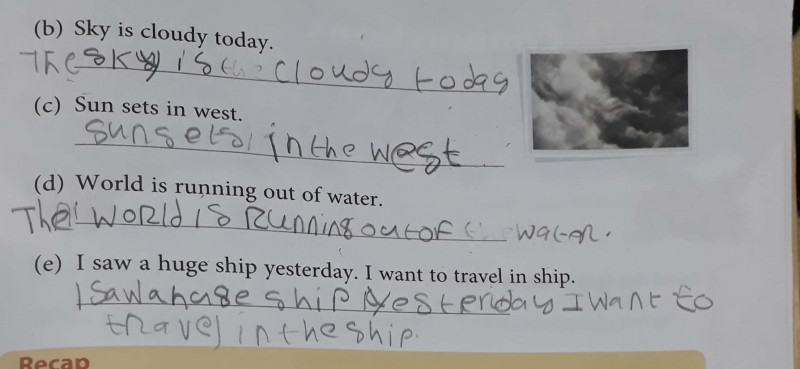 (b) Sky is cloudy today.
The sky is cloudy today
(c) Sun sets in west.
Sun sets in the west
(d) World is running out of water.
The World is Running out of water.
(e) I saw a huge ship yesterday. I want to travel in ship.
I Saw a huge ship yesterday I want to
travel in the ship.
Recap